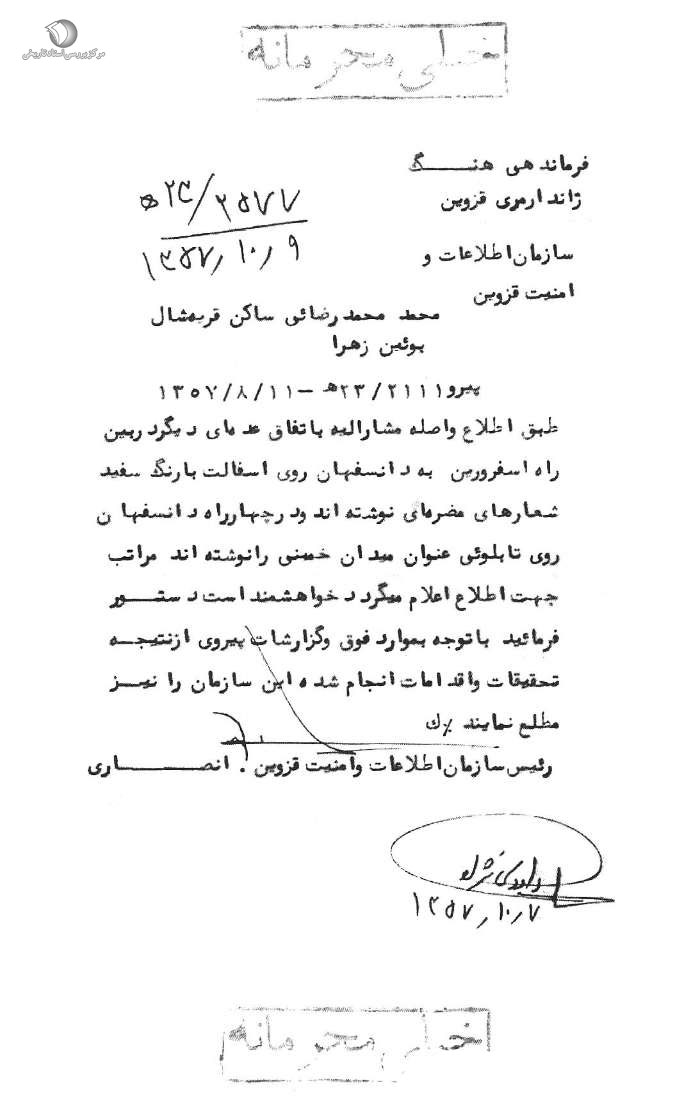 مرکز بررسی اسناد تاریخی
خیلی محرمانه
فرماندهی هنـــگ
ژاندارمری قزوین
۲۳/۲۵۷۷ ه
۱۳۵۷/۱۰/۹
سازمان اطلاعات و
امنیت قزوین
محمد محمد رضائی ساکن قریه شال
بوئین زهرا
پیرو ۲۳/۲۱۱۱ه‍ - ۱۳۵۷/۸/۱۱
طبق اطلاع واصله مشارالیه باتفاق عده‌ای دیگر دربین
راه اسفرورین به دانسفهان روی اسفالت بارنگ سفید
شعارهای مضره‌ای نوشته اند و در چهارراه دانسفهان
روی تابلوئی عنوان میدان خمینی را نوشته اند مراتب
جهت اطلاع اعلام میگردد خواهشمند است دستـــور
فرمائید باتوجه بموارد فوق وگزارشات پیروی ازنتیجـــه
تحقیقات واقدامات انجام شده این سازمان را نیـــز
مطلع نمایند ک
رئیس سازمان اطلاعات وامنیت قزوین . انصـــاری
۱۳۵۷/۱۰/۷
خیلی محرمانه